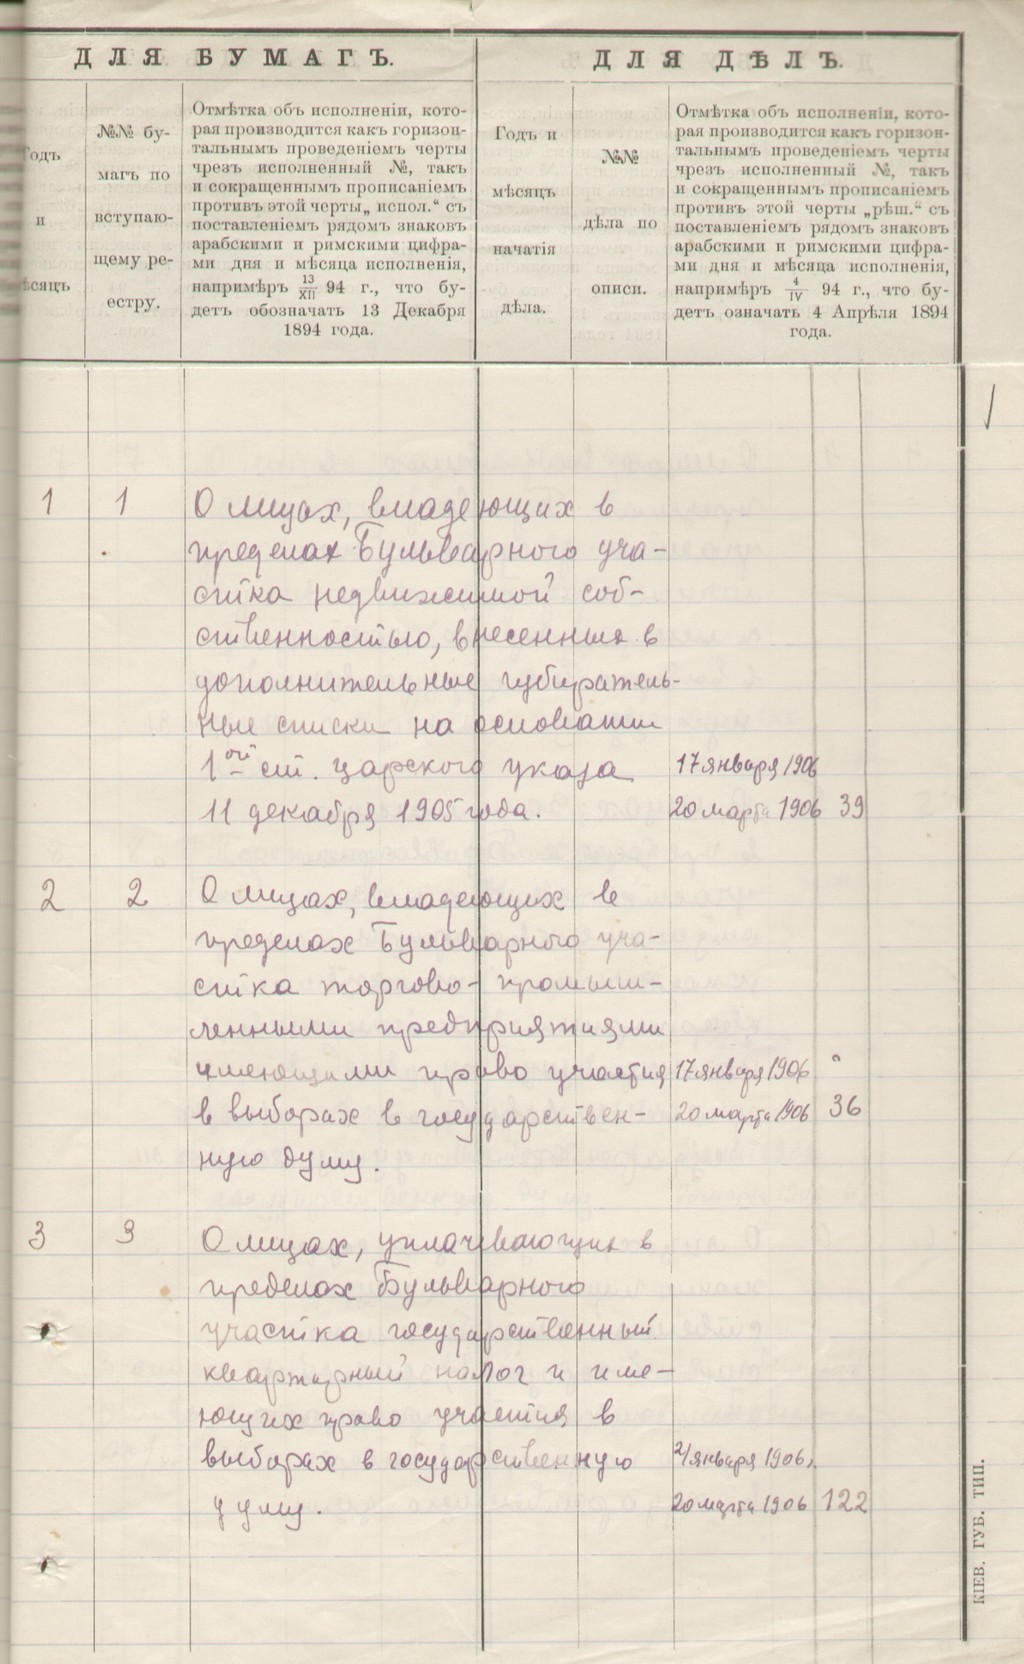 ДЛЯ БУМАГЪ.
ДЛЯ ДѢЛЪ.
Годъ
и
мѣсяцъ
№№ бу-
магъ по
вступаю-
щему ре-
естру.
Отмѣтка объ исполненіи, кото-
рая производится какъ горизон-
тальнымъ проведеніемъ черты
чрезъ исполненный №, такъ
и сокращеннымъ прописаніемъ
противъ этой черты „ испол.“ съ
поставленіемъ рядомъ знаковъ
арабскими и римскими цифра-
ми дня и мѣсяца исполненія,
напримѣръ 13/XII 94 г., что бу-
детъ обозначать 13 Декабря
1894 года.
Годъ и
мѣсяцъ
начатія
дѣла.
№№
дѣла по
описи.
Отмѣтка объ исполненіи, кото-
рая производится какъ горизон-
тальнымъ проведеніемъ черты
чрезъ исполненный №, такъ
и сокращеннымъ прописаніемъ
противъ этой черты „рѣш.“ съ
поставленіемъ рядомъ знаковъ
арабскими и римскими цифра-
ми дня и мѣсяца исполненія,
напримѣръ 4/IV 94 г., что бу-
детъ означать 4 Апрѣля 1894
года.
1 1 О лицах, владеющих в
пределах Бульварного уча-
стка недвижимой соб-
ственностью, внесенных в
дополнительные избиратель-
ные списки на основании
1ой ст. царского указа 17 января 1906
11 декабря 1905 года. 20 марта 1906 39
2 2 О лицах, владеющих в
пределах Бульварного уча-
стка торгово-промыш-
ленными предприятиями
имеющими право участия 17 января 1906 "
в выборах в государствен- 20 марта 1906 36
ную думу.
3 3 О лицах, уплачивающих в
пределах Бульварного
участка государственный
квартирный налог и име-
ющих право участия в
выборах в государственную 21 января 1906
думу. 20 марта 1906 122
КІЕВ. ГУБ. ТИП.